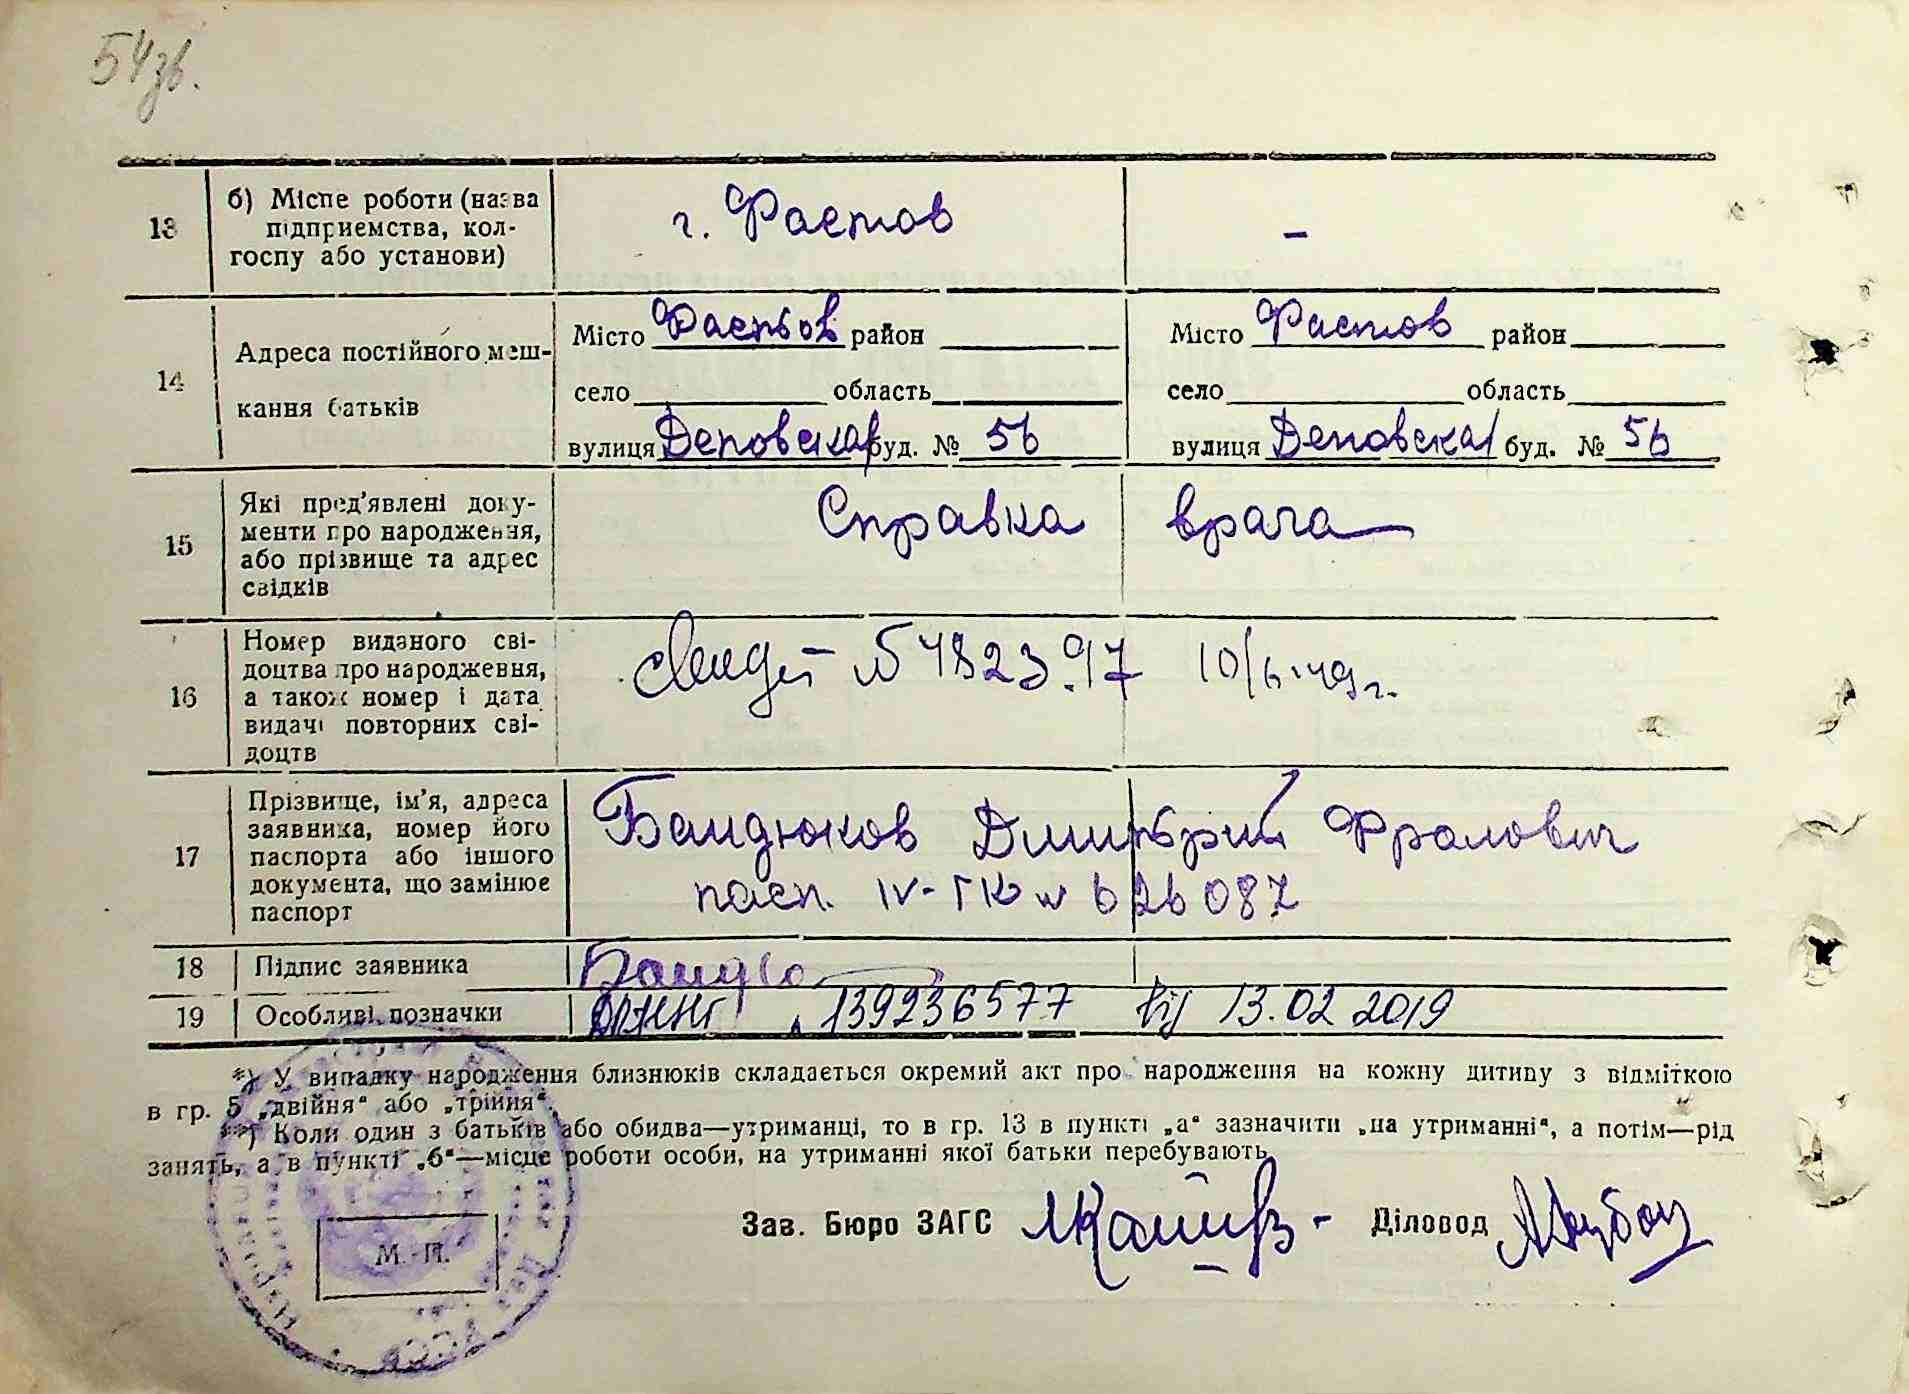 54зв.
13
б) Місце роботи (назва підприемства, колгоспу або установи)
г. Фастов
-
14
Адреса постійного мешкання батьків
Місто Фастов район
село область
вулиця Деповская буд. № 56
Місто Фастов район
село область
вулиця Деповская буд. № 56
15
Які пред'явлені документи про народження, або прізвище та адрес свідків
Справка врача
16
Номер виданого свідоцтва про народження, а також номер і дата видачі повторних свідоцтв
№ 482397 10/
17
Прізвище, ім'я, адреса заявника, номер його паспорта або іншого документа, що замінює паспорт
Бандюков Дмитрий Фролович
пасп. IV-ГК № 626087
18
Підпис заявника
19
Особливі позначки
139236577 від 13.02 2019
*) У випадку народження близнюків складається окремий акт про народження на кожну дитину з відміткою
в гр. 5 „двійня“ або „трійня“.
**) Коли один з батьків або обидва—утриманці, то в гр. 13 в пункті „а“ зазначити „на утриманні“, а потім—рід
занять, а в пункті „б“—місце роботи особи, на утриманні якої батьки перебувають
Зав. Бюро ЗАГС
Діловод
М. П.